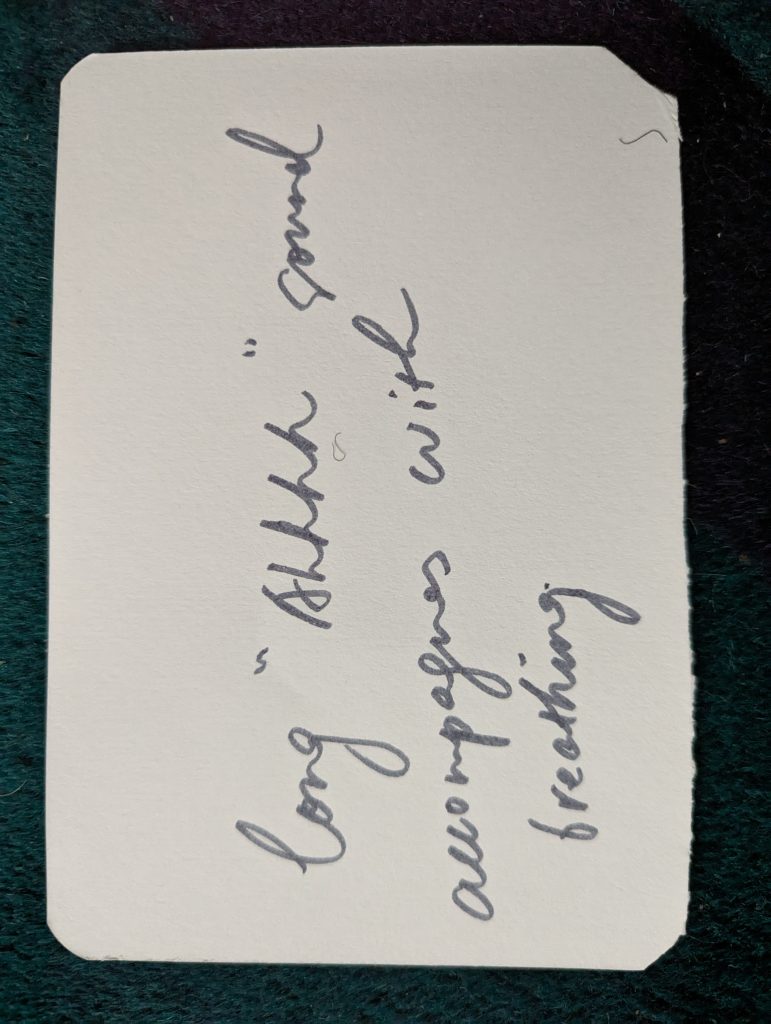 long "Ahhhh" sound
accompagnes with
breathing